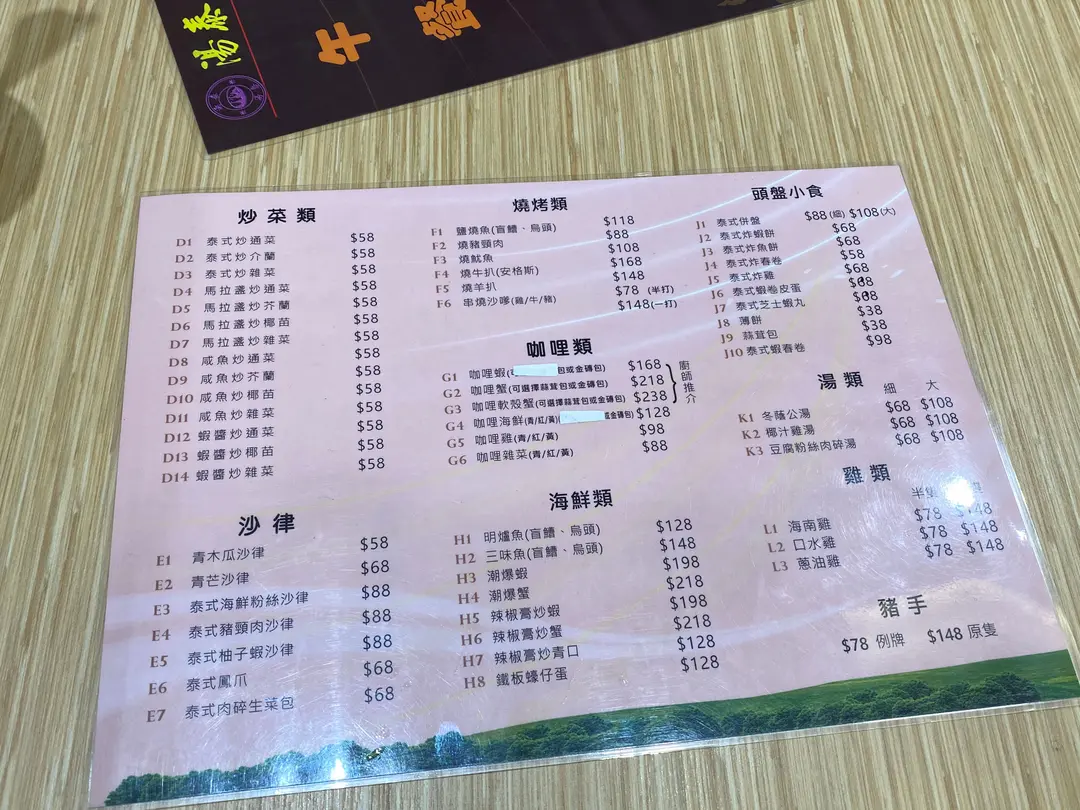 泰
湯
午
餐
炒菜類
D1 泰式炒通菜 $58
D2 泰式炒介蘭 $58
D3 泰式炒雜菜 $58
D4 馬拉盞炒通菜 $58
D5 馬拉盞炒芥蘭 $58
D6 馬拉盞炒椰苗 $58
D7 馬拉盞炒雜菜 $58
D8 咸魚炒通菜 $58
D9 咸魚炒芥蘭 $58
D10 咸魚炒椰苗 $58
D11 咸魚炒雜菜 $58
D12 蝦醬炒通菜 $58
D13 蝦醬炒椰苗 $58
D14 蝦醬炒雜菜 $58
沙律
E1 青木瓜沙律 $58
E2 青芒沙律 $68
E3 泰式海鮮粉絲沙律 $88
E4 泰式豬頸肉沙律 $88
E5 泰式柚子蝦沙律 $88
E6 泰式鳳爪 $68
E7 泰式肉碎生菜包 $68
燒烤類
F1 鹽燒魚(盲鰽、烏頭) $118
F2 燒豬頸肉 $88
F3 燒魷魚 $108
F4 燒牛扒(安格斯) $168
F5 燒羊扒 $148
F6 串燒沙嗲(雞/牛/豬) $78 (半打)
$148(一打)
咖哩類
G1 咖哩蝦( 包或金磚包) $168
G2 咖哩蟹(可選擇蒜茸包或金磚包) $218
G3 咖哩軟殼蟹(可選擇蒜茸包或金磚包) $238
廚師推介
G4 咖哩海鮮(青/紅/黃)( 或金磚包) $128
G5 咖哩雞(青/紅/黃) $98
G6 咖哩雜菜(青/紅/黃) $88
海鮮類
H1 明爐魚(盲鰽、烏頭) $128
H2 三味魚(盲鰽、烏頭) $148
H3 潮爆蝦 $198
H4 潮爆蟹 $218
H5 辣椒膏炒蝦 $198
H6 辣椒膏炒蟹 $218
H7 辣椒膏炒青口 $128
H8 鐵板蠔仔蛋 $128
頭盤小食
J1 泰式併盤 $88(細) $108(大)
J2 泰式炸蝦餅 $68
J3 泰式炸魚餅 $68
J4 泰式炸春卷 $58
J5 泰式炸雞 $68
J6 泰式蝦卷皮蛋 $68
J7 泰式芝士蝦丸 $68
J8 薄餅 $38
J9 蒜茸包 $38
J10 泰式蝦春卷 $98
湯類
細 大
K1 冬蔭公湯 $68 $108
K2 椰汁雞湯 $68 $108
K3 豆腐粉絲肉碎湯 $68 $108
雞類
半隻
L1 海南雞 $78 $148
L2 口水雞 $78 $148
L3 蔥油雞 $78 $148
豬手
$78 例牌 $148 原隻